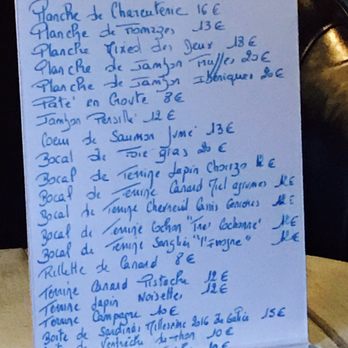 Planche de Charcuterie 16 €
Planche de Fromages 13 €
Planche Mixed des Deux 18 €
Planche de Jambon Truffes 20 €
Planche de Jambon Ibériques 20 €
Pâté en Croute 8 €
Jambon Persillé 12 €
Coeur de Saumon fumé 13 €
Bocal de Foie gras 20 €
Bocal de Terrine Lapin Chorizo 12 €
Bocal de Terrine Canard Miel agrumes 12 €
Bocal de Terrine Chevreuil Cassis 12 €
Bocal de Terrine Cochon "Tres Cochonne" 12 €
Bocal de Terrine Sanglier "l'Ivrogne" 12 €
Rillette de Canard 8 €
Terrine Canard Pistache 12 €
Terrine Lapin Noisettes 12 €
Terrine Campagne 10 €
Boite de Sardines Millesime 2016 15 €
de Ventrèche de Thon 10 €
10 €